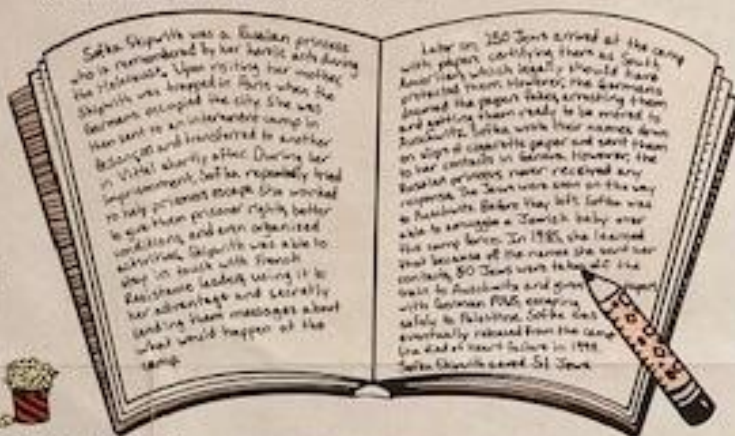 Sofka Skipwith was a Russian princess
who is remembered by her heroic acts during
the Holocaust. Upon visiting her mother,
Skipwith was trapped in Paris when the
Germans occupied the city. She was
then sent to an internment camp in
Besançon and transferred to another
in Vittel shortly after. During her
imprisonment, Sofka repeatedly tried
to help prisoners escape. She worked
to give them prisoner rights, better
conditions, and even organized
activities. Skipwith was able to
stay in touch with French
Resistance leaders, using it to
her advantage and secretly
sending them messages about
what would happen at the
camp.
Later on, 250 Jews arrived at the camp
with papers certifying them as South
American which legally should have
protected them. However, the Germans
deemed the papers fakes, arresting them
and getting them ready to be moved to
Auschwitz. Sofka wrote their names down
on slips of cigarette paper and sent them
to her contacts in Geneva. However, the
Russian princess never received any
response. The Jews were soon on the way
to Auschwitz. Before they left, Sofka was
able to smuggle a Jewish baby over
the camp fence. In 1985, she learned
that because of the names she sent her
contacts, 50 Jews were taken off the
train to Auschwitz and given
with German POWs, escaping
safely to Palestine. Sofka was
eventually released from the camp
died of heart failure in 1994.
Sofka Skipwith saved 51 Jews